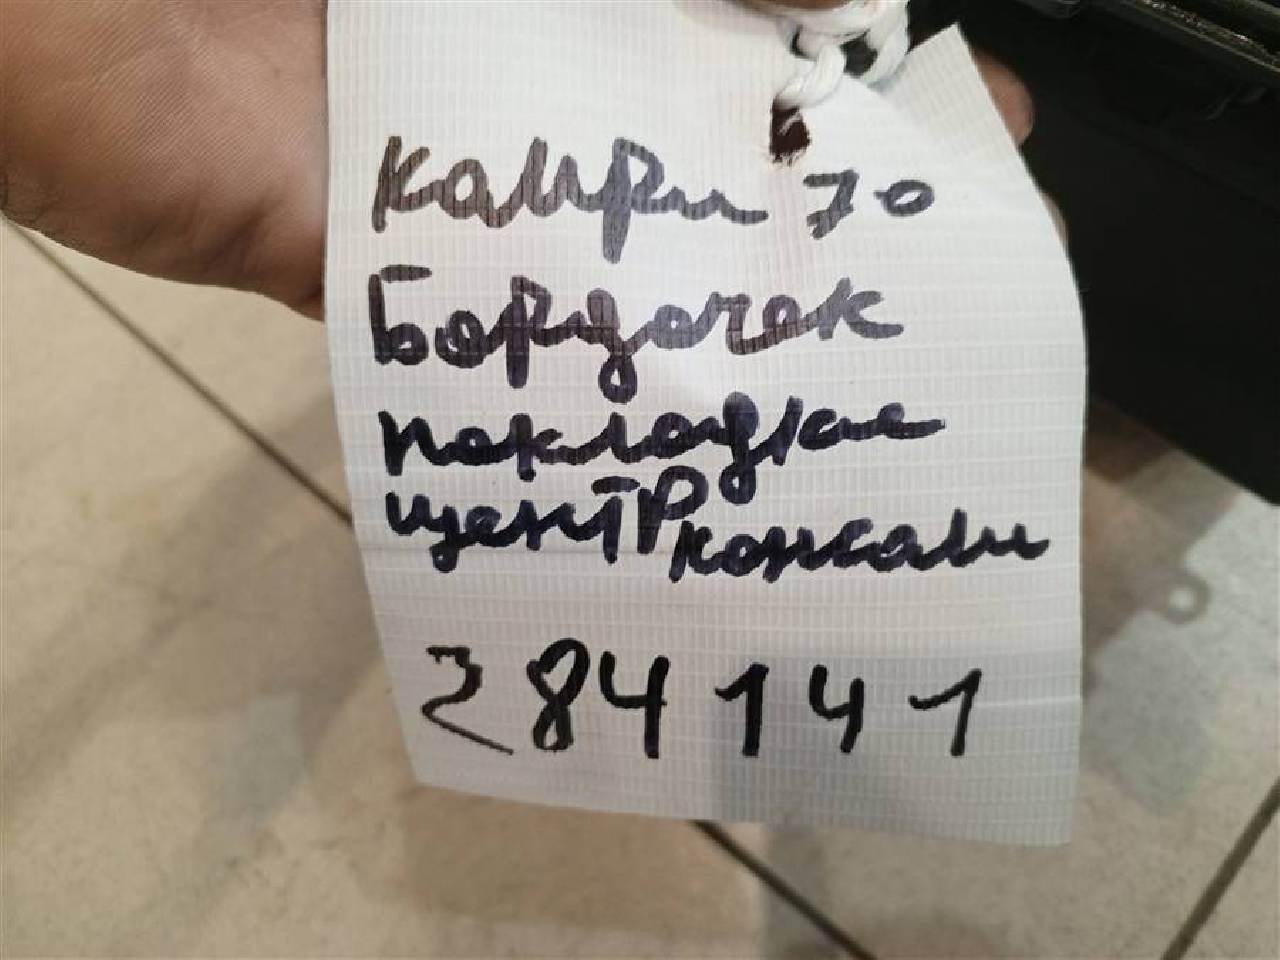 Камри 70
Бордочек
покладке
центр консали
284141